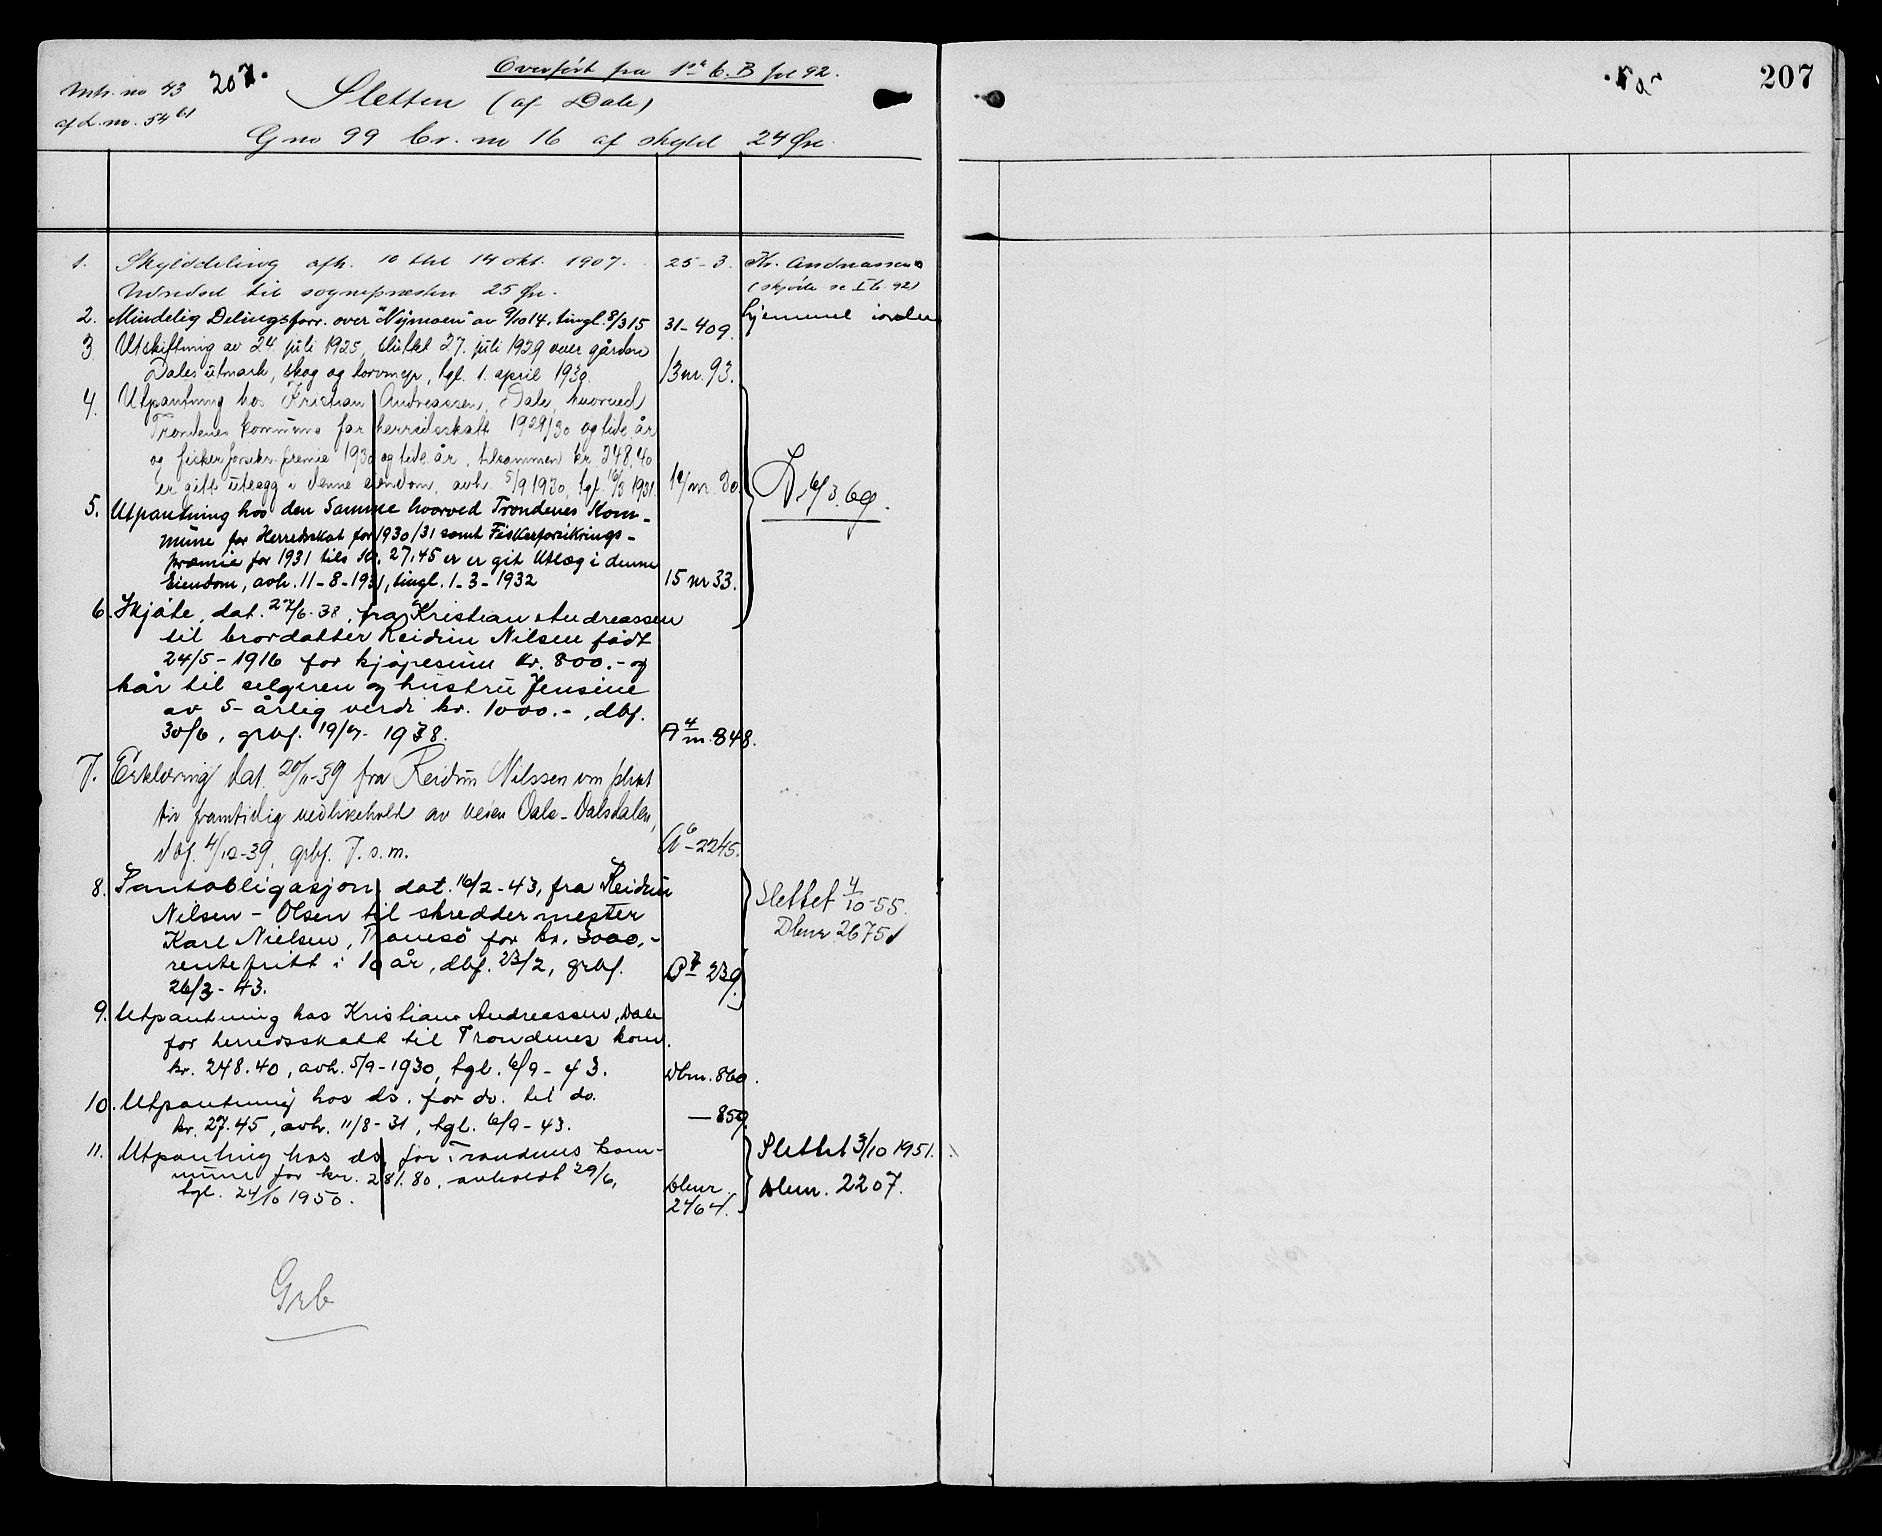 Overført fra 1ste b. B fol 92.
Mtr. no 43 207.
af L. no. 54 61
Sletten (af Dale)
G no 99 br. no 16 af skyld 24 Øre
207
1. Skylddeling afh. 10 thl 14 okt. 1907. 25-3. Kr. Andreassen
Udredsel til sognepresten 25 Øre. (skjøte se I b. 92)
hjemmel iorden
2. Mindelig Delingsforr. over "Nymoen" av 9/10 14, tingl. 8/3 15 31-409.
3 Utskiftning av 24. juli 1925, sluttet 27. juli 1929 over gården
Dales utmark, skog og torvmyr, tgl. 1. april 1930. 13 nr. 93.
4. Utpantning hos Kristian Andreassen, Dale, hvorved
Trondenes kommune for herredsskatt 1929/30 og tidl. år
og fisker forsikr. premie 1930 og tidl. år, tilsammen kr. 248,40
er gitt utlegg i denne eiendom, avh. 5/9 1930, tgl. 16/3 1931. 14 nr. 30.
6/3.69.
5. Utpantning hos den Samme hvorved Trondenes Kom-
mune for Herredsskat for 1930/31 samt Fiskerforsikrings-
præmie for 1931 tils Kr. 27.45 er er git Utlæg i denne
Eiendom, avh. 11-8-1931, tingl. 1-3-1932 15 nr 33.
6. Skjøte, dat. 27/6-38, fra Kristian Andreassen
til brordatter Reidun Nilsen født
24/5-1916 for kjøpesum kr. 800.- og
kår til selgeren og hustru Jensine
av 5-årlig verdi kr. 1000.-, dbf.
30/6, grbf. 19/7-1938. A 4 m. 848.
7. Erklæring dat. 20/11-39 fra Reidun Nilssen om plikt
til framtidig vedlikehold av veien Dale-Dalsdalen,
dbf. 4/12-39, grbf. 7. s. m. A 6 -2245.
8. Pantobligasjon, dat. 16/2-43, fra Reidun
Nilsen-Olsen til skreddermester
Karl Nielsen, Tromsø for kr. 3000.-
rentefritt i 10 år, dbf. 23/2, grbf.
26/2-43. P 7 239.
Slettet 4/10-55.
Dbnr 2675
9. Utpantning hos Kristian Andreassen, Dale
for herredsskatt til Trondenes kom.
kr. 248.40, avh. 5/9-1930, tgl. 6/9-43. Dbnr. 860.
10. Utpantning hos ds. for do. til do.
kr. 27.45, avh. 11/8-31, tgl. 6/9-43. — 859
11. Utpantning hos ds. for Trondenes kom-
mune for kr. 281.80, avholdt 29/6,
tgl. 24/10 1950. Dbnr. 2464.
Slettet 3/10 1951.
Dbnr. 2207.
Grb